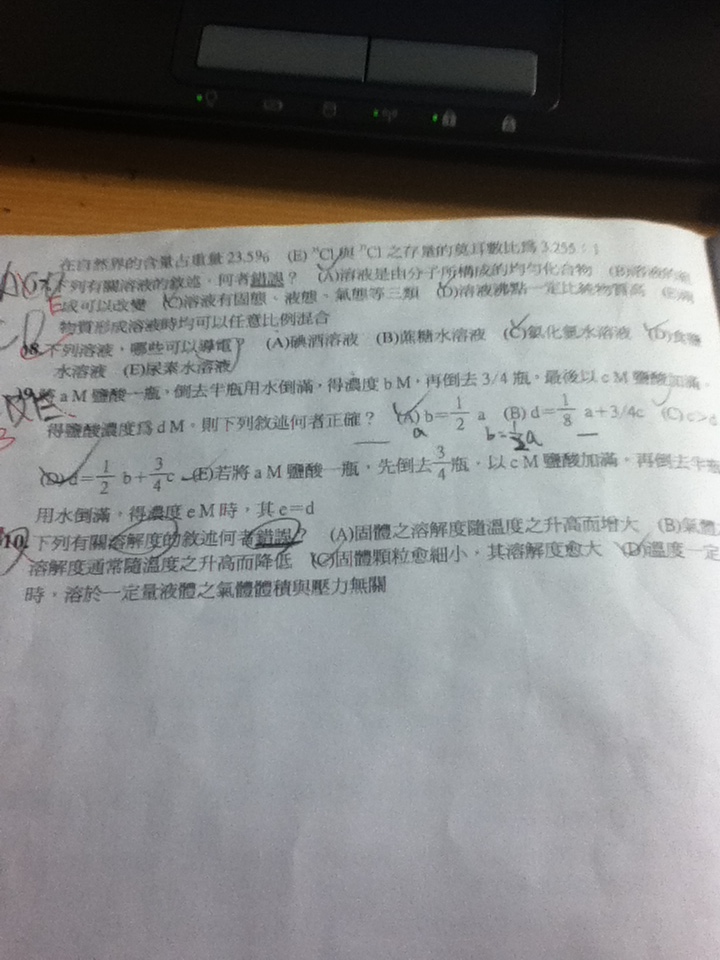 在自然界的含量占重量 23.5% (E) ³⁵Cl 與 ³⁷Cl 之存量的莫耳數比為 3.255：1
下列有關溶液的敘述，何者錯誤？ (A)溶液是由分子所構成的均勻化合物 (B)溶液的組
成可以改變 (C)溶液有固態、液態、氣態等三類 (D)溶液沸點一定比純物質高 (E)兩
物質形成溶液時均可以任意比例混合
8. 下列溶液，哪些可以導電？ (A)碘酒溶液 (B)蔗糖水溶液 (C)氯化氫水溶液 (D)食鹽
水溶液 (E)尿素水溶液
9. 將 a M 鹽酸一瓶，倒去半瓶用水倒滿，得濃度 b M，再倒去 3/4 瓶，最後以 c M 鹽酸加滿，
得鹽酸濃度為 d M。則下列敘述何者正確？ (A) b=1/2 a (B) d=1/8 a+3/4c (C) c>d
b=1/2a
(D) d=1/2 b+3/4 c (E)若將 a M 鹽酸一瓶，先倒去3/4瓶，以 c M 鹽酸加滿，再倒去半瓶
用水倒滿，得濃度 e M 時，其 e=d
10. 下列有關溶解度的敘述何者錯誤？ (A)固體之溶解度隨溫度之升高而增大 (B)氣體
溶解度通常隨溫度之升高而降低 (C)固體顆粒愈細小，其溶解度愈大 (D)溫度一定
時，溶於一定量液體之氣體體積與壓力無關